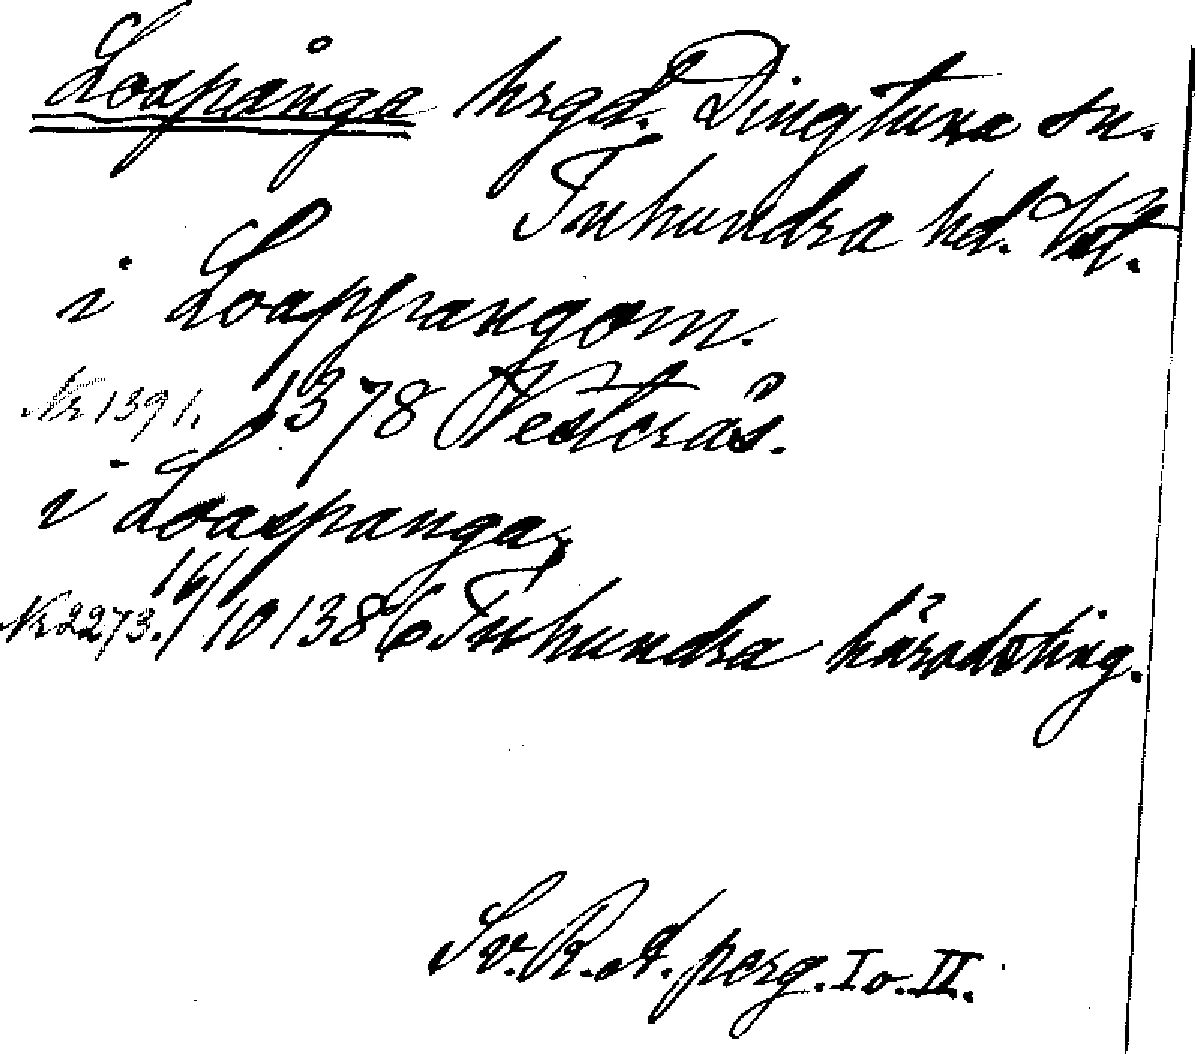 Loapånga hrgd. Dingtuna sn.
Tuhundra hd. Vstm.
i Loapprangom.
Nr 1391. 1378 Vesterås.
i Loaspanga,
Nr 2273. 16/10 1386 Tuhundra häradsting.
Sv. R. A. perg. I o. II.